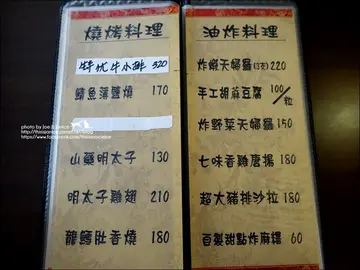 燒烤料理
特优牛小排 320
鯖魚蒲鹽燒 170
山藥明太子 130
明太子雞翅 210
龍鱈肚香燒 180
油炸料理
炸蝦天婦羅(3支)220
手工胡麻豆腐 100/粒
炸野菜天婦羅 150
七味香雞唐揚 180
超大豬排沙拉 180
自製甜點炸麻糬 60
photo by Joe &